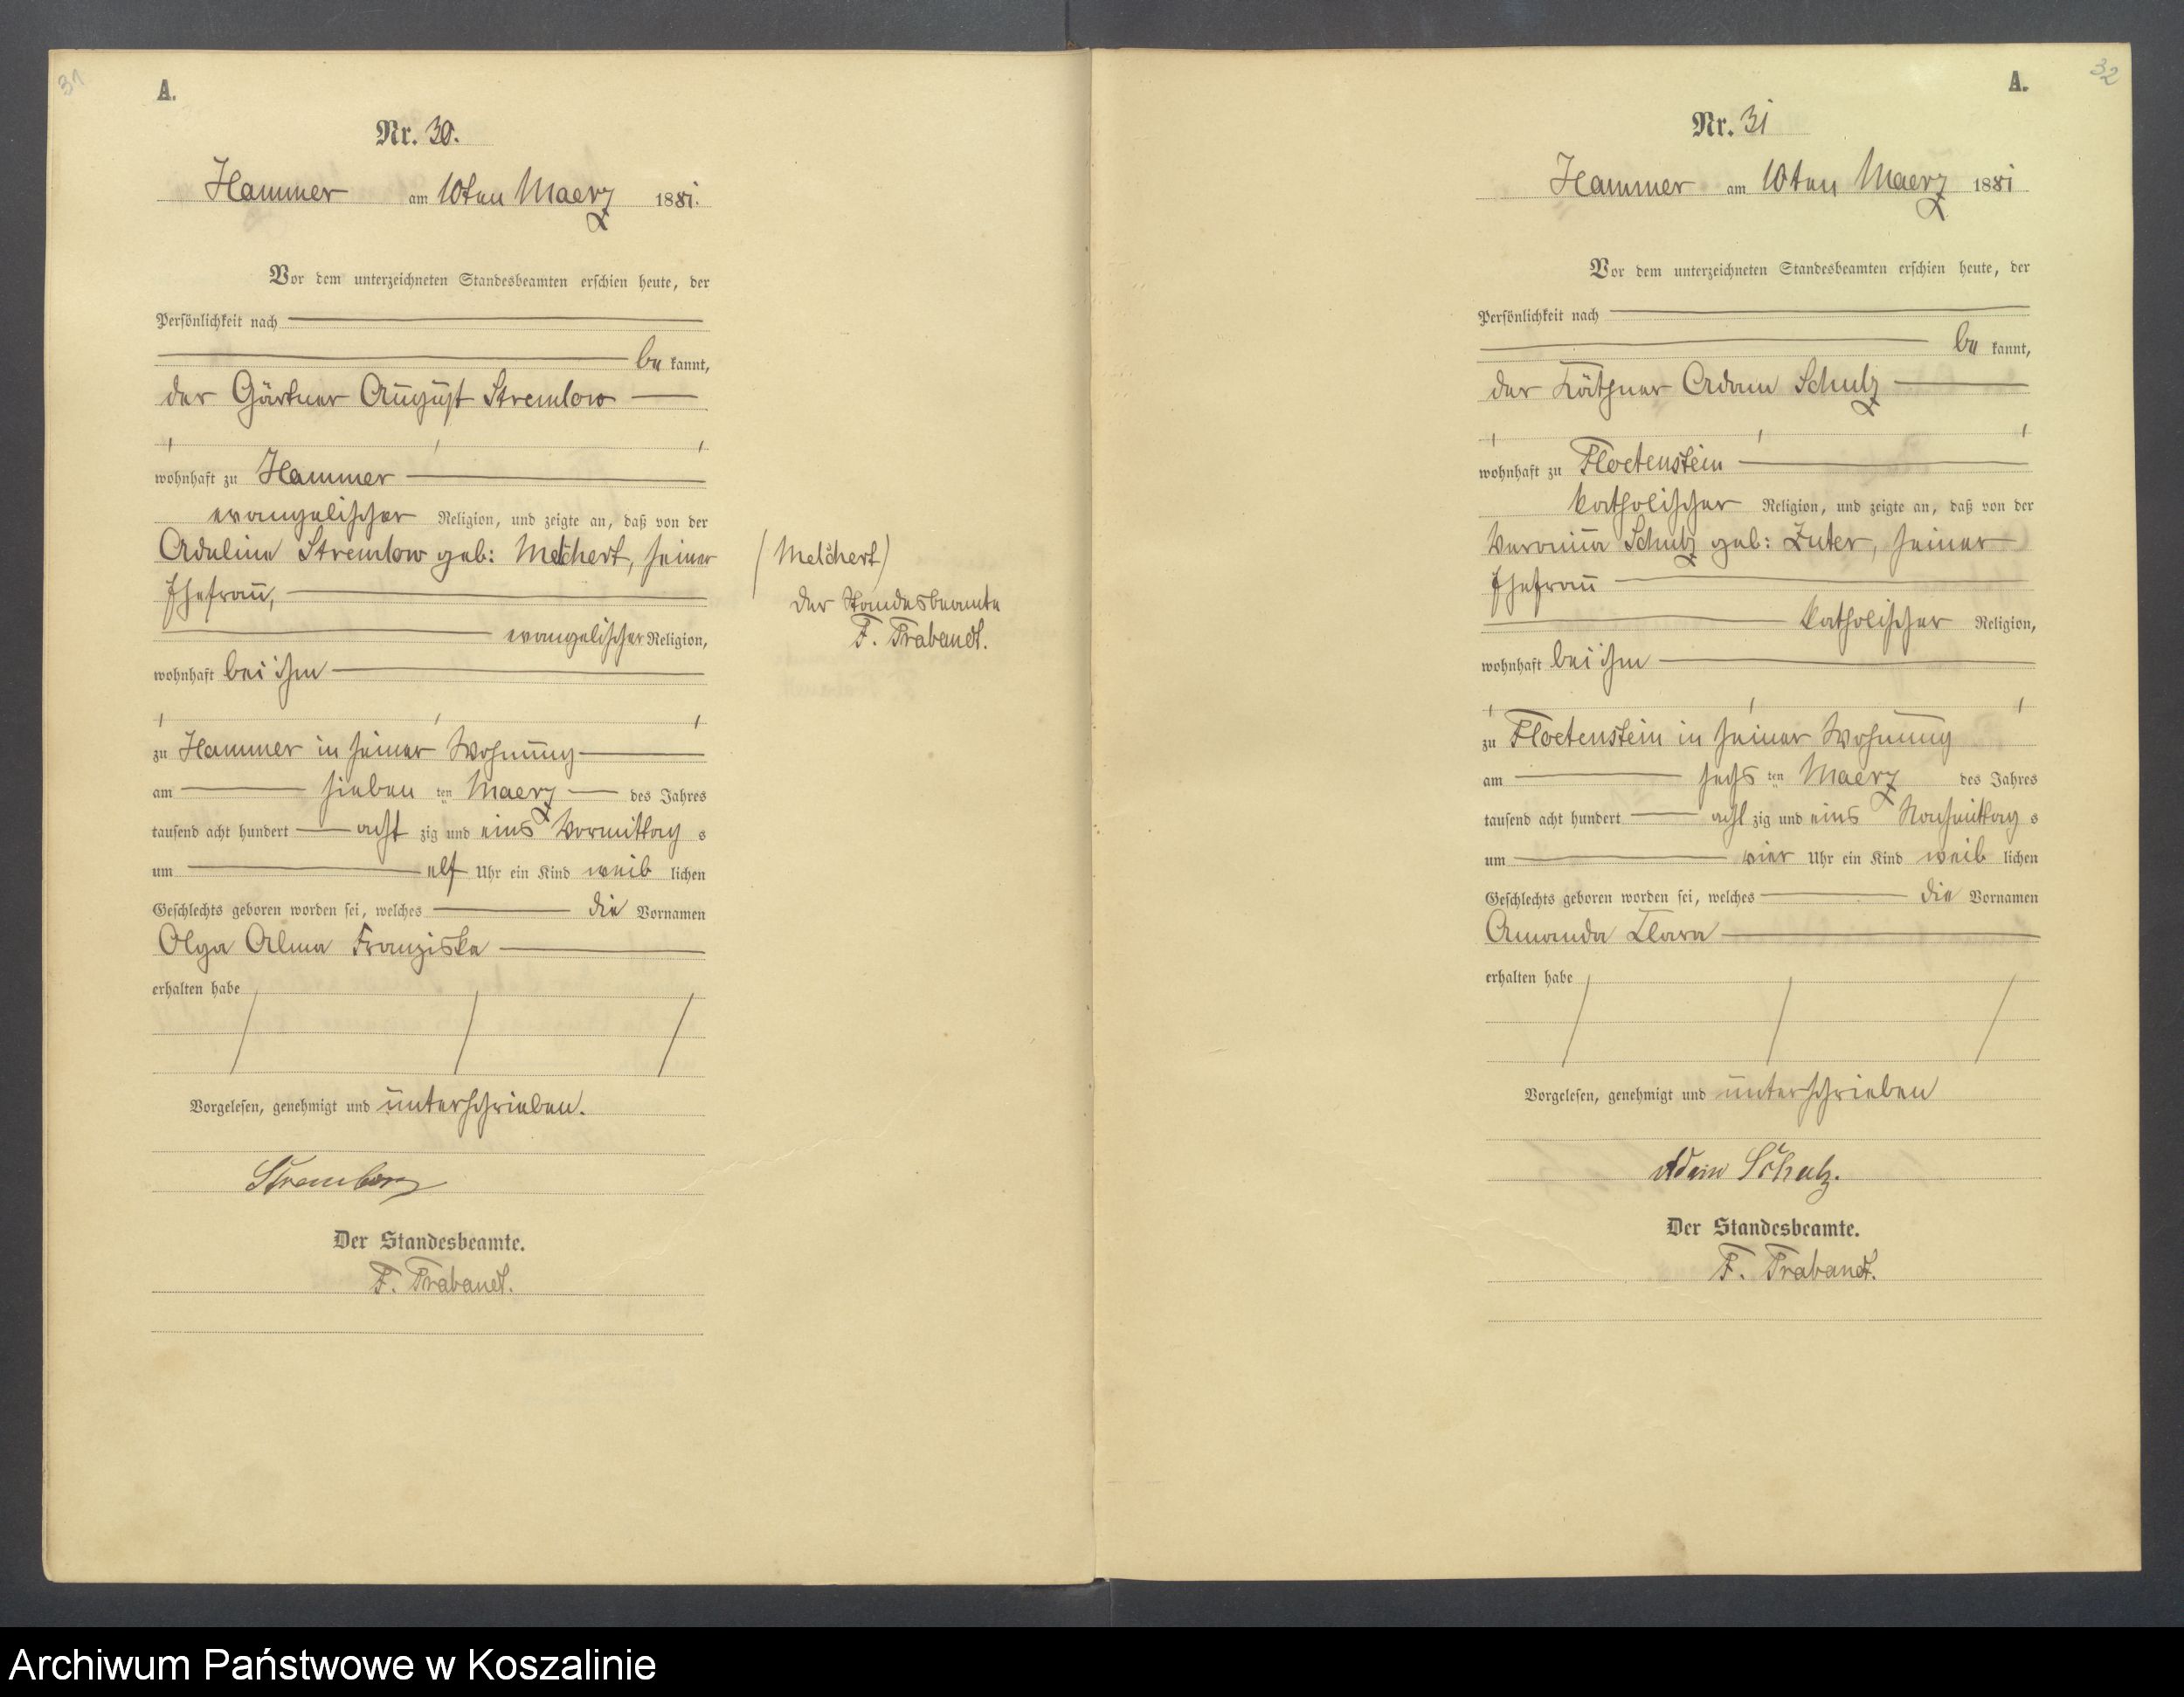 31
A.
Nr. 30.
Hammer am 10ten Maerz 1881.
Vor dem unterzeichneten Standesbeamten erschien heute, der
Persönlichkeit nach
be kannt,
der Gärtner August Stremlow
wohnhaft zu Hammer
evangelischer Religion, und zeigte an, daß von der
Adeline Stremlow geb: Melchert, seiner
Ehefrau,
evangelischer Religion,
wohnhaft bei ihm
zu Hammer in seiner Wohnung
am sieben ten Maerz des Jahres
tausend acht hundert acht zig und eins Vormittag s
um elf Uhr ein Kind weib lichen
Geschlechts geboren worden sei, welches die Vornamen
Olga Alma Franziska
erhalten habe
Vorgelesen, genehmigt und unterschrieben.
Der Standesbeamte.
F. Trabandt.
(Melchert)
Der Standesbeamte
F. Trabandt.
32
A.
Nr. 31
Hammer am 10ten Maerz 1881
Vor dem unterzeichneten Standesbeamten erschien heute, der
Persönlichkeit nach
be kannt,
der Käthner Adam Schulz
wohnhaft zu Floetenstein
katholischer Religion, und zeigte an, daß von der
Veronica Schulz geb: Zuter, seiner
Ehefrau
katholischer Religion,
wohnhaft bei ihm
zu Floetenstein in seiner Wohnung
am sechs ten Maerz des Jahres
tausend acht hundert acht zig und eins Nachmittag s
um vier Uhr ein Kind weib lichen
Geschlechts geboren worden sei, welches die Vornamen
Amanda Clara
erhalten habe
Vorgelesen, genehmigt und unterschrieben
Adam Schulz.
Der Standesbeamte.
F. Trabandt.
Archiwum Państwowe w Koszalinie